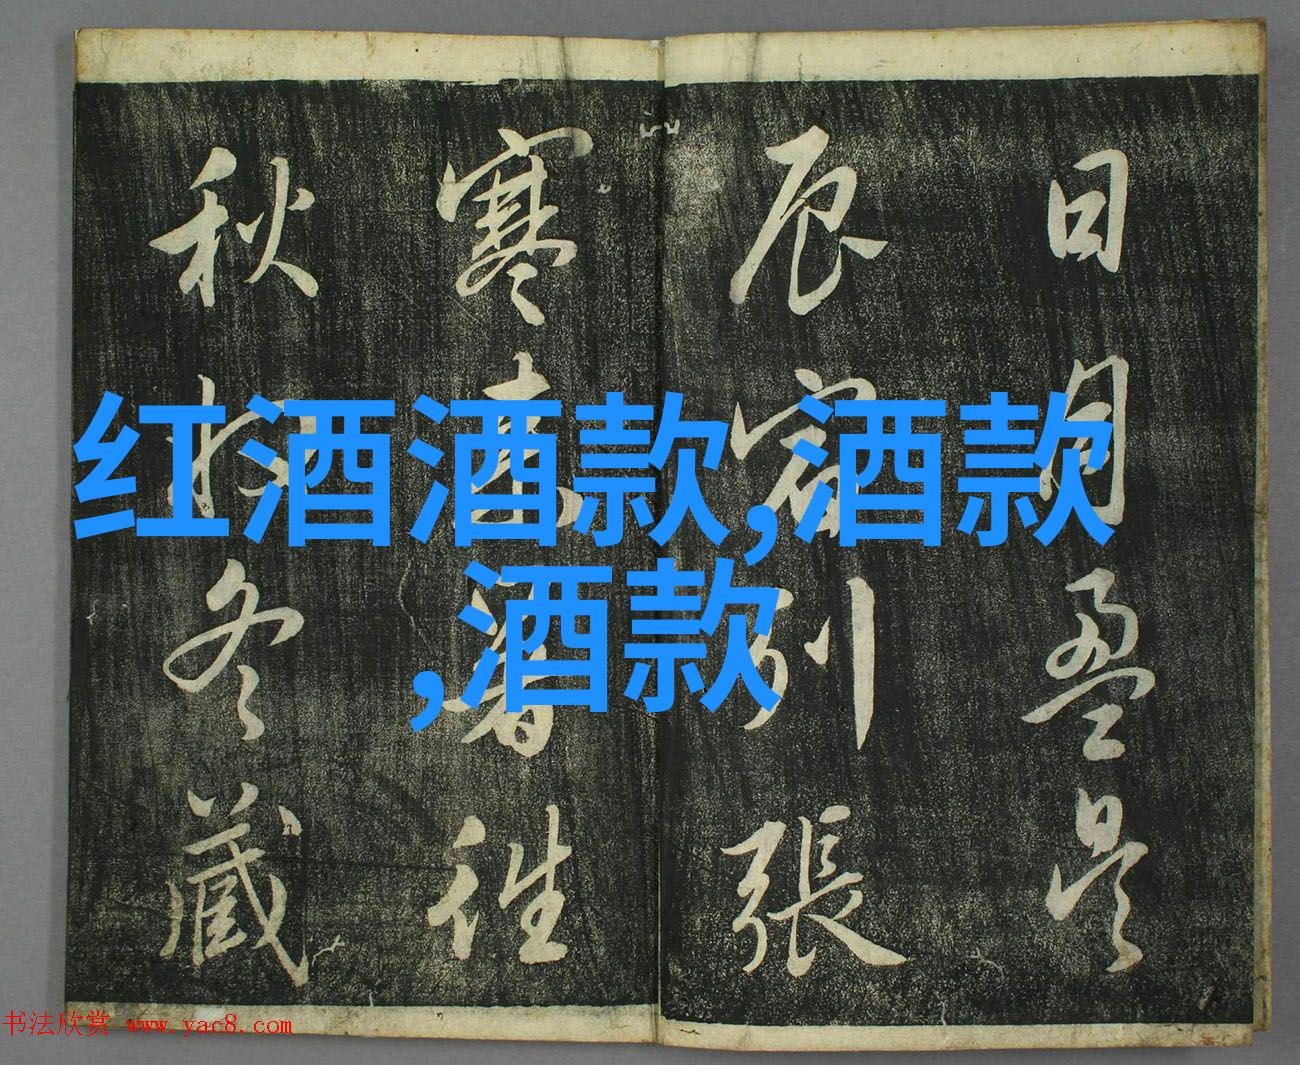 日月盈昃
辰宿列張
寒來暑往
秋收冬藏
红酒酒款,酒款
,酒款
书法欣赏 www.yac8.com